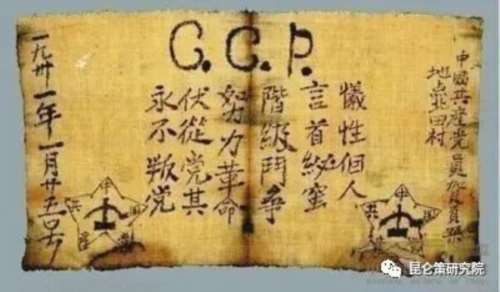 C.C.P.
中國共産党員
地點北田村
犠性個人
言首蜜
階級鬥争
努力革命
伏從党其
永不叛党
一九卅一年一月廿五号
中國共産
中國共産
昆仑策研究院